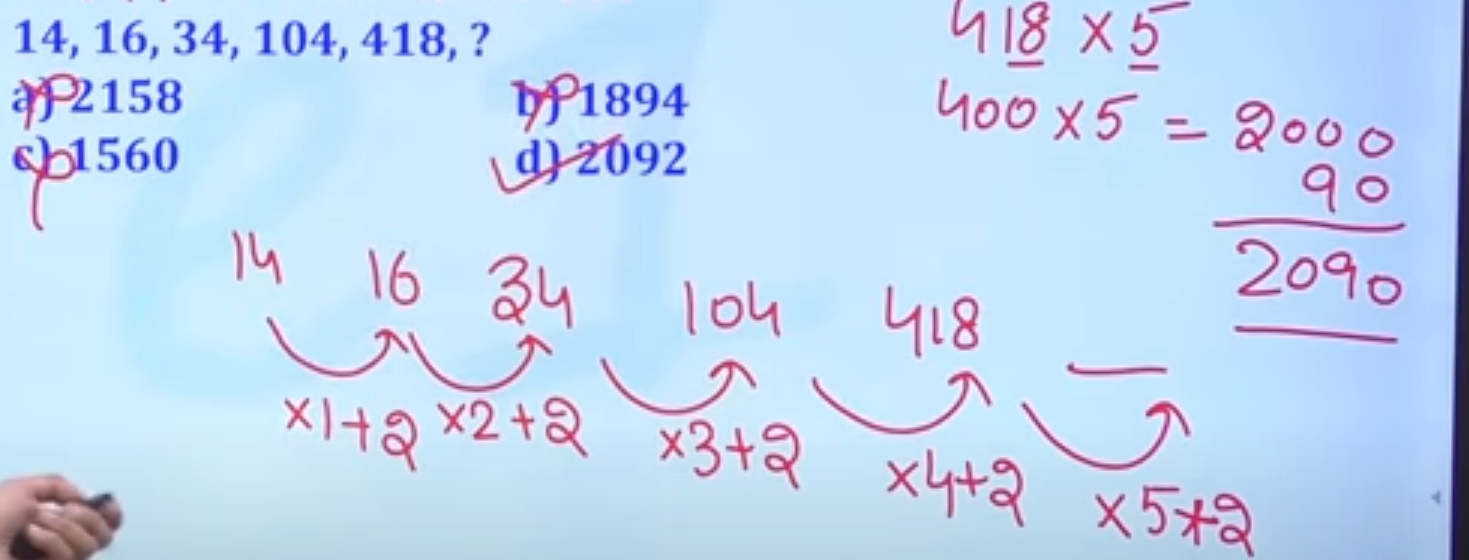 14, 16, 34, 104, 418, ?
a) 2158 b) 1894
c) 1560 d) 2092
418 × 5
400 × 5 = 2000
90
2090
14 16 34 104 418 __
×1+2 ×2+2 ×3+2 ×4+2 ×5+2